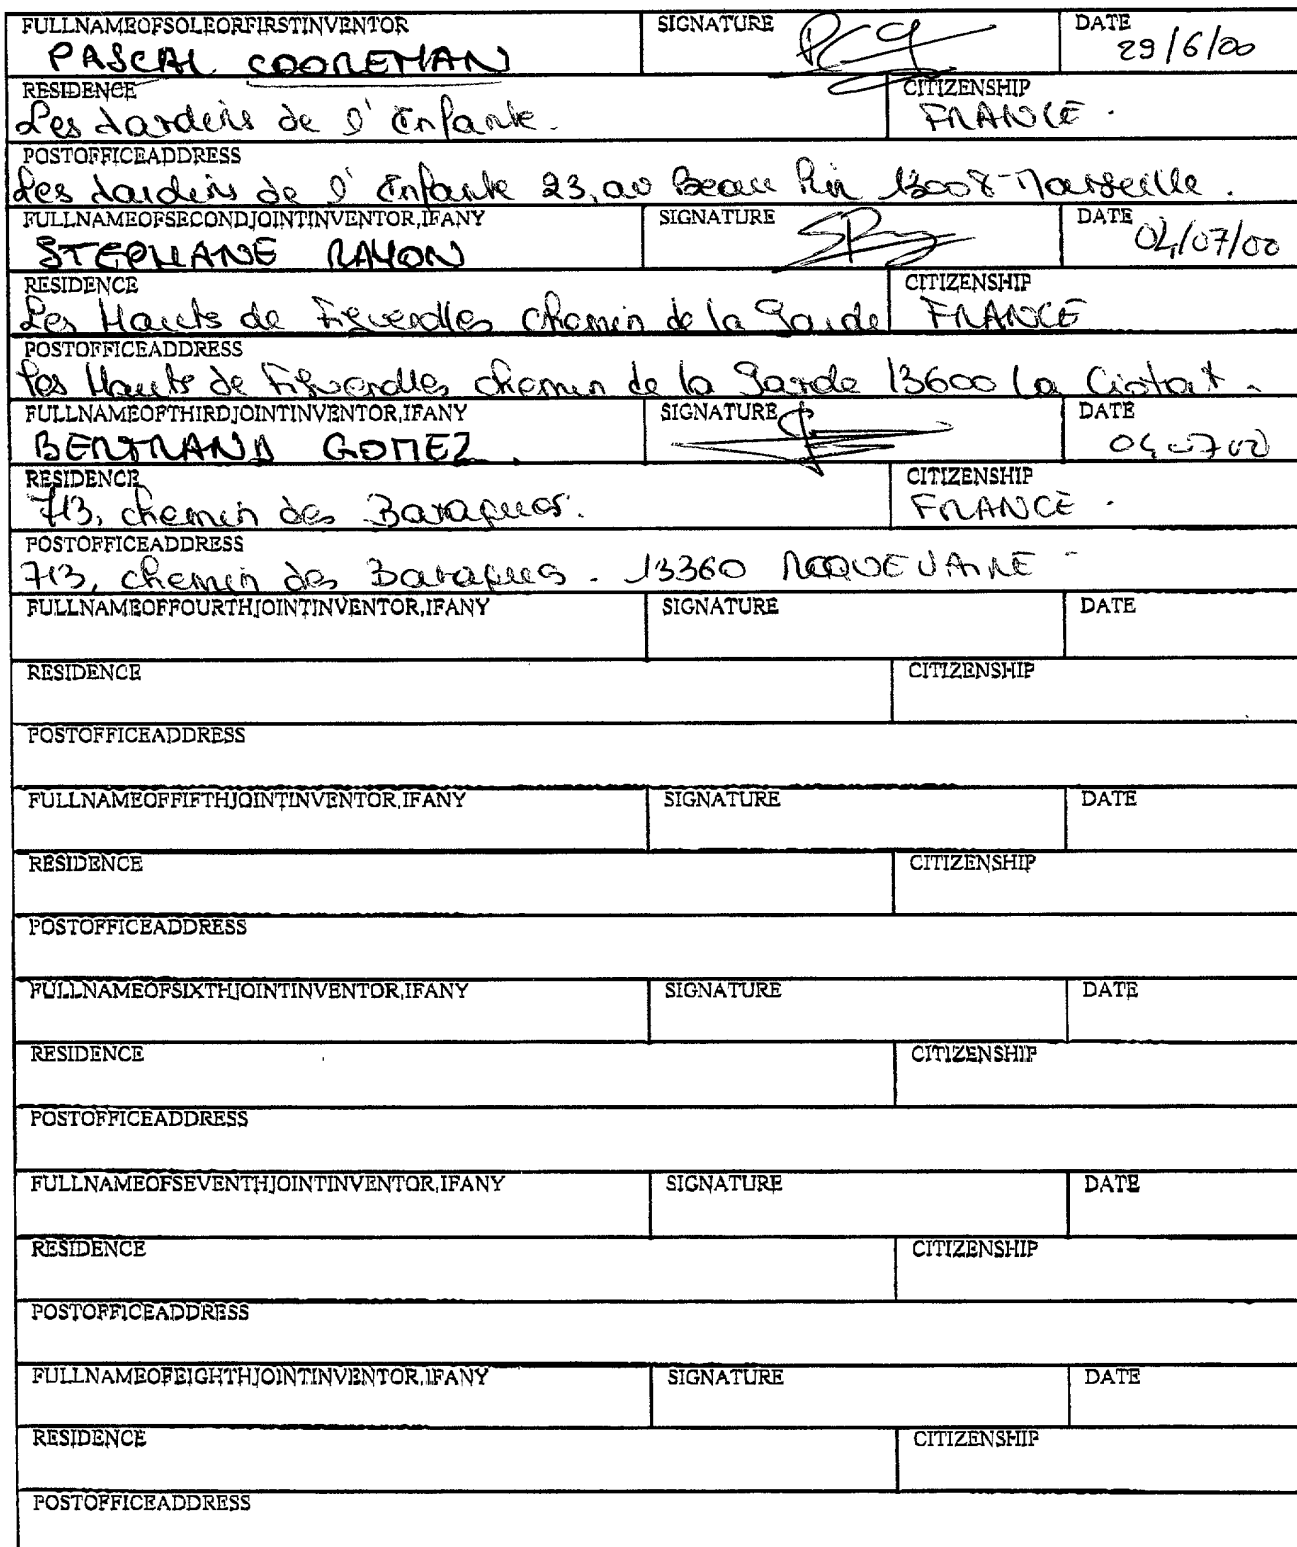 FULLNAMEOFSOLEORFIRSTINVENTOR SIGNATURE DATE
PASCAL COOREMAN 29/6/00
RESIDENCE CITIZENSHIP
Les Jardins de l'Enfante. FRANCE.
POSTOFFICEADDRESS
Les Jardins de l'Enfante 23, av Beau Pin 13008-Marseille.
FULLNAMEOFSECONDJOINTINVENTOR,IFANY SIGNATURE DATE
STEPHANE RAYON 04/07/00
RESIDENCE CITIZENSHIP
Les Hauts de Figuerolles chemin de la Garde FRANCE
POSTOFFICEADDRESS
Les Hauts de Figuerolles, chemin de la Garde 13600 La Ciotat.
FULLNAMEOFTHIRDJOINTINVENTOR,IFANY SIGNATURE DATE
BERTRAND GOMEZ. 04 07 00
RESIDENCE CITIZENSHIP
713, chemin des Baraques. FRANCE.
POSTOFFICEADDRESS
713, chemin des Baraques. 13360 ROQUEVAIRE -
FULLNAMEOFFOURTHJOINTINVENTOR,IFANY SIGNATURE DATE
RESIDENCE CITIZENSHIP
POSTOFFICEADDRESS
FULLNAMEOFFIFTHJOINTINVENTOR,IFANY SIGNATURE DATE
RESIDENCE CITIZENSHIP
POSTOFFICEADDRESS
FULLNAMEOFSIXTHJOINTINVENTOR,IFANY SIGNATURE DATE
RESIDENCE CITIZENSHIP
POSTOFFICEADDRESS
FULLNAMEOFSEVENTHJOINTINVENTOR,IFANY SIGNATURE DATE
RESIDENCE CITIZENSHIP
POSTOFFICEADDRESS
FULLNAMEOFEIGHTHJOINTINVENTOR,IFANY SIGNATURE DATE
RESIDENCE CITIZENSHIP
POSTOFFICEADDRESS